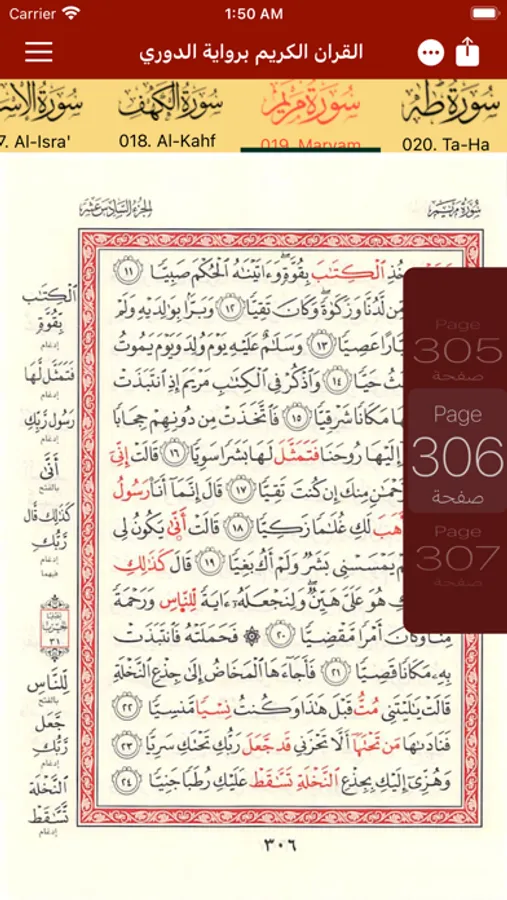 Carrier 1:50 AM
القران الكريم برواية الدوري
سورة الإس سورة الكهف سورة مريم سورة طه
7. Al-Isra' 018. Al-Kahf 019. Maryam 020. Ta-Ha
سُورَةُ مَرْيَم
الجزء السادس عشر
خُذِ ٱلْكِتَٰب بِقُوَّةٍۖ وَءَاتَيْنَٰهُ ٱلْحُكْمَ صَبِيًّا ١١
مِّن لَّدُنَّا وَزَكَوٰةًۖ وَكَانَ تَقِيًّا ١٢ وَبَرًّۢا بِوَٰلِدَيْهِ وَلَمْ
عَصِيًّا ١٣ وَسَلَٰمٌ عَلَيْهِ يَوْمَ وُلِدَ وَيَوْمَ يَمُوتُ
حَيًّا ١٤ وَٱذْكُرْ فِي ٱلْكِتَٰبِ مَرْيَمَ إِذِ ٱنتَبَذَتْ
مَكَانًا شَرْقِيًّا ١٥ فَٱتَّخَذَتْ مِن دُونِهِمْ حِجَابًا
إِلَيْهَا رُوحَنَا فَتَمَثَّل لَهَا بَشَرًا سَوِيًّا ١٦ قَالَتْ إِنِّيَ
مِنكَ إِن كُنتَ تَقِيًّا ١٧ قَالَ إِنَّمَا أَنَا۠ رَسُول
لَكِ غُلَٰمًا زَكِيًّا ١٨ قَالَتْ أَنّىٰ يَكُونُ لِي
يَمْسَسْنِي بَشَرٌ وَلَمْ أَكُ بَغِيًّا ١٩ قَالَ كَذَٰلِكِ
هُوَ عَلَيَّ هَيِّنٌۖ وَلِنَجْعَلَهُۥ ءَايَةً لِّلنَّاسِ وَرَحْمَةً
مِّنَّا وَكَانَ أَمْرًا مَّقْضِيًّا ٢٠ ۞ فَحَمَلَتْهُ فَٱنتَبَذَتْ
بِهِۦ مَكَانًا قَصِيًّا ٢١ فَأَجَآءَهَا ٱلْمَخَاضُ إِلَىٰ جِذْعِ ٱلنَّخْلَةِ
قَالَتْ يَٰلَيْتَنِي مُتُّ قَبْلَ هَٰذَا وَكُنتُ نِسْيًا مَّنسِيًّا ٢٢
فَنَادَىٰهَا مَن تَحْتَهَآ أَلَّا تَحْزَنِي قَد جَّعَل رَّبُّكِ تَحْتَكِ سَرِيًّا ٢٣
وَهُزِّيٓ إِلَيْكِ بِجِذْعِ ٱلنَّخْلَةِ تَّسَّٰقَطْ عَلَيْكِ رُطَبًا جَنِيًّا ٢٤
ٱلْكِتَٰب
بِّقُوَّةٍ
إدغام
فَتَمَثَّل لَّهَا
إدغام
رَسُول رَّبِّكِ
إدغام
أَنّىٰ
بالفتح
كَذَٰلِك قَّالَ
رَّبُّكِ
إدغام
فيهما
الحزب
٣١
لِّلنَّاسِ
بالفتح
جَعَل
رَّبُّكِ
إدغام
ٱلنَّخْلَة
تَّسَّٰقَطْ
إدغام
Page
305
صفحة
Page
306
صفحة
Page
307
صفحة
٣٠٦